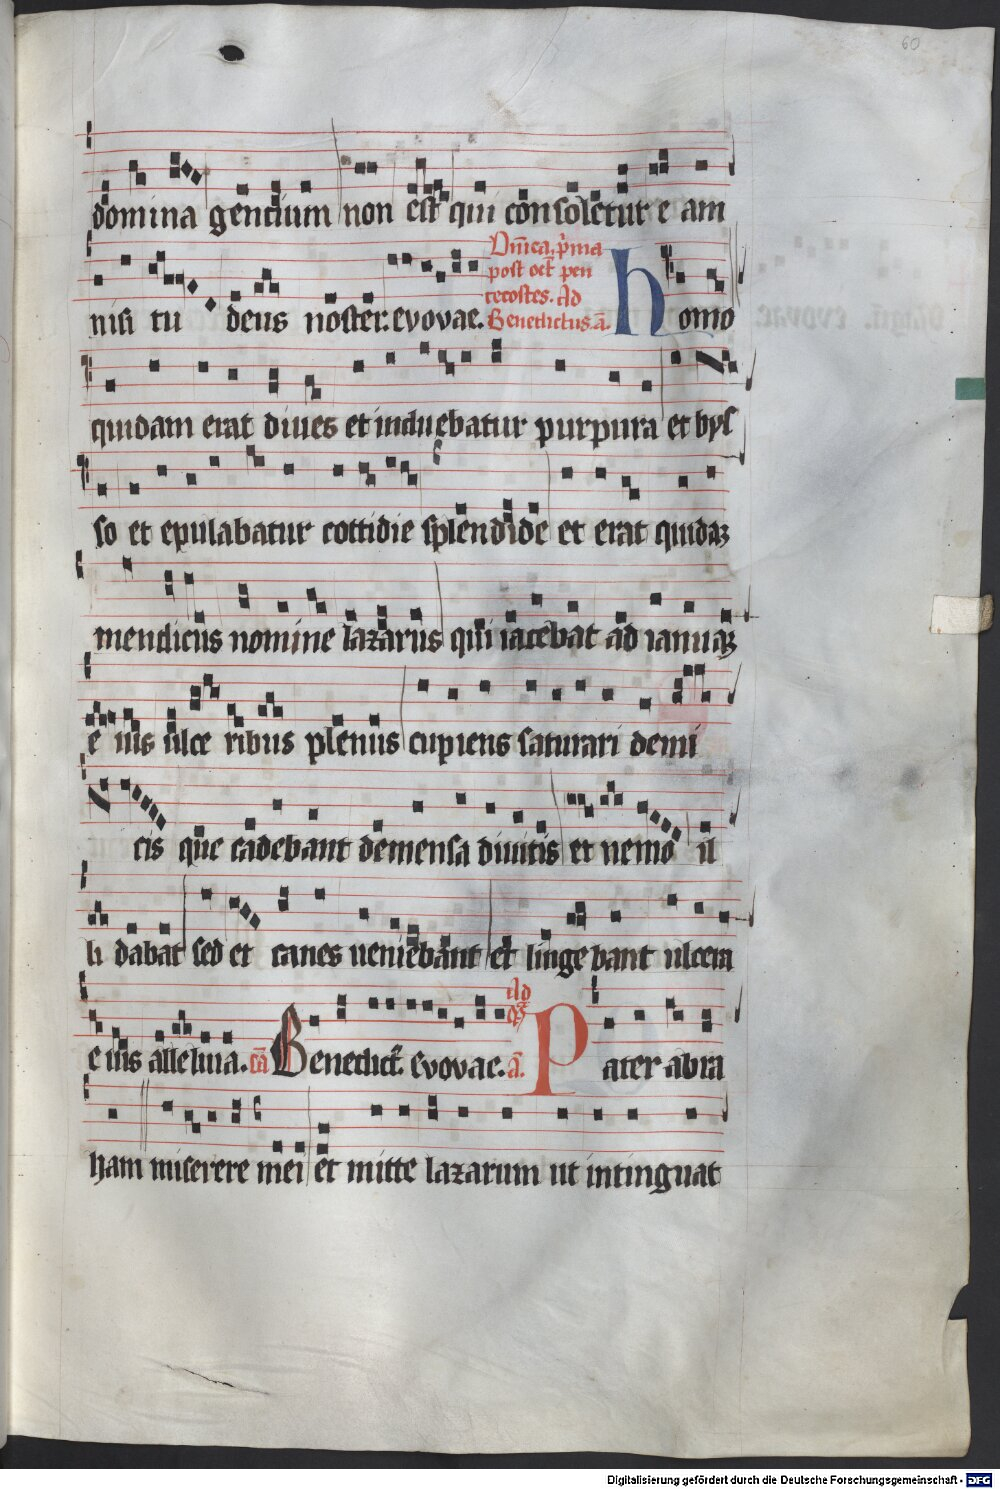 60
domina gencium non est qui consoletur e am
nisi tu deus noster. evovae.
Dn̄ica. p̄ma
post oct̄ pen
tecostes. Ad
Benedictus. a̅.
homo
quidam erat diues et induebatur purpura et bys
so et epulabatur cottidie splendide et erat quidaʒ
mendicus nomine lazarus qui iacebat ad ianuaʒ
e ius ulce ribus plenus cupiens saturari demi
cis que cadebant demensa diuitis et nemo il
li dabat sed et canes ueniebant et linge bant ulcera
e ius alleluia. ca̅ Benedict̄. evovae. Ad a̅. Pater abra
ham miserere mei et mitte lazarum ut intinguat
Digitalisierung gefördert durch die Deutsche Forschungsgemeinschaft - DFG